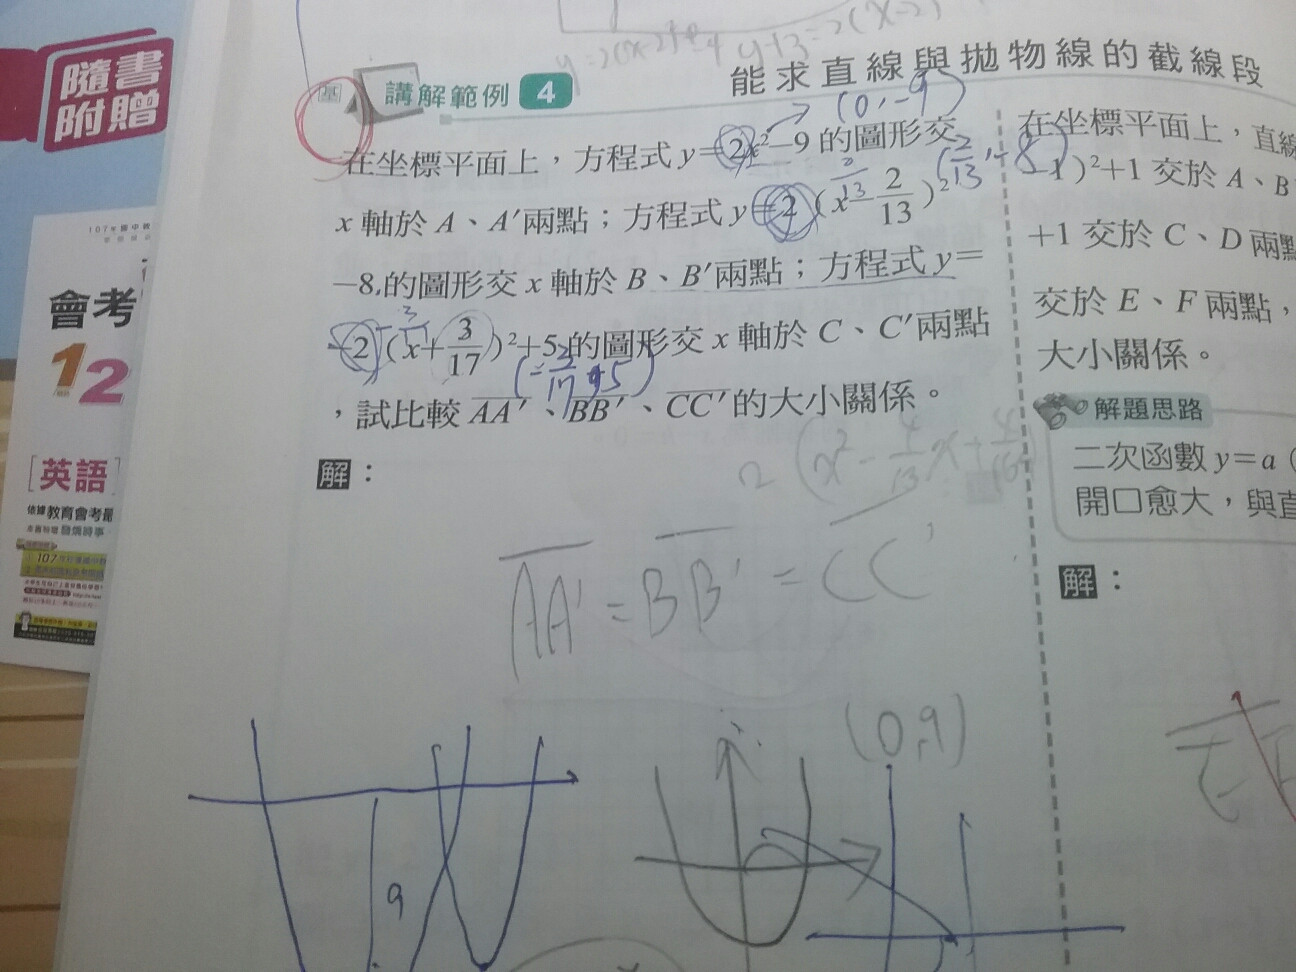 隨書
附贈
107年國中教
會考
12
[英語]
依據教育會考最
y+3=2(x-2)
講解範例 4
能求直線與拋物線的截線段
(0,-9)
在坐標平面上，方程式 y=2x²-9 的圖形交
x 軸於 A、A′兩點；方程式 y=2(x-2/13)²
-8 的圖形交 x 軸於 B、B′兩點；方程式 y=
-2(x+3/17)²+5 的圖形交 x 軸於 C、C′兩點
，試比較 AA′、BB′、CC′的大小關係。
解：
AA'=BB'=CC'
(0,9)
9
在坐標平面上，直線
-1)²+1 交於 A、B
+1 交於 C、D 兩點
交於 E、F 兩點，
大小關係。
解題思路
二次函數 y=a(
開口愈大，與直
解：